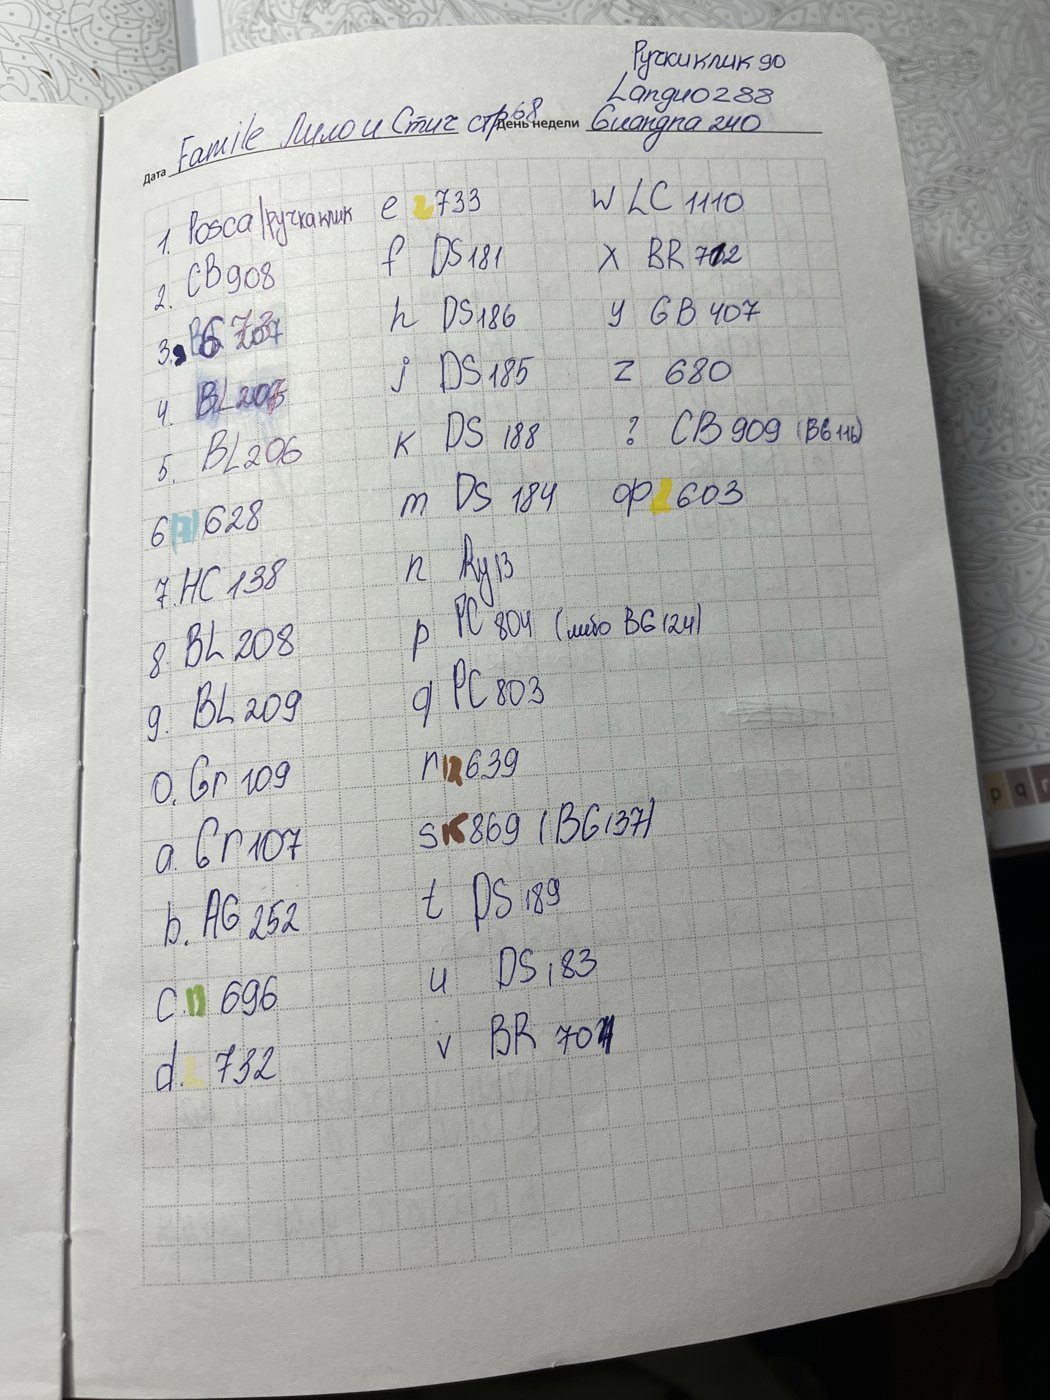 Ручки клик 90
Languo 288
Guangna 240
Famile Лило и Стич стр 68
Дата
День недели
1. Posca/ручка клик
2. CB 908
3.
4. BL 205
5. BL 206
6 628
7. HC 138
8. BL 208
9. BL 209
0. Gr 109
a. Gr 107
b. AG 252
c. 696
d. 732
e 733
f DS 181
h DS 186
j DS 185
k DS 188
m DS 184
n Ry 13
p PC 804 (либо BG 124)
q PC 803
r 639
s K 869 (BG 137)
t DS 189
u DS 183
v BR 704
w LC 1110
x BR 712
y GB 407
z 680
? CB 909 (BG 116)
φ 603
p q r